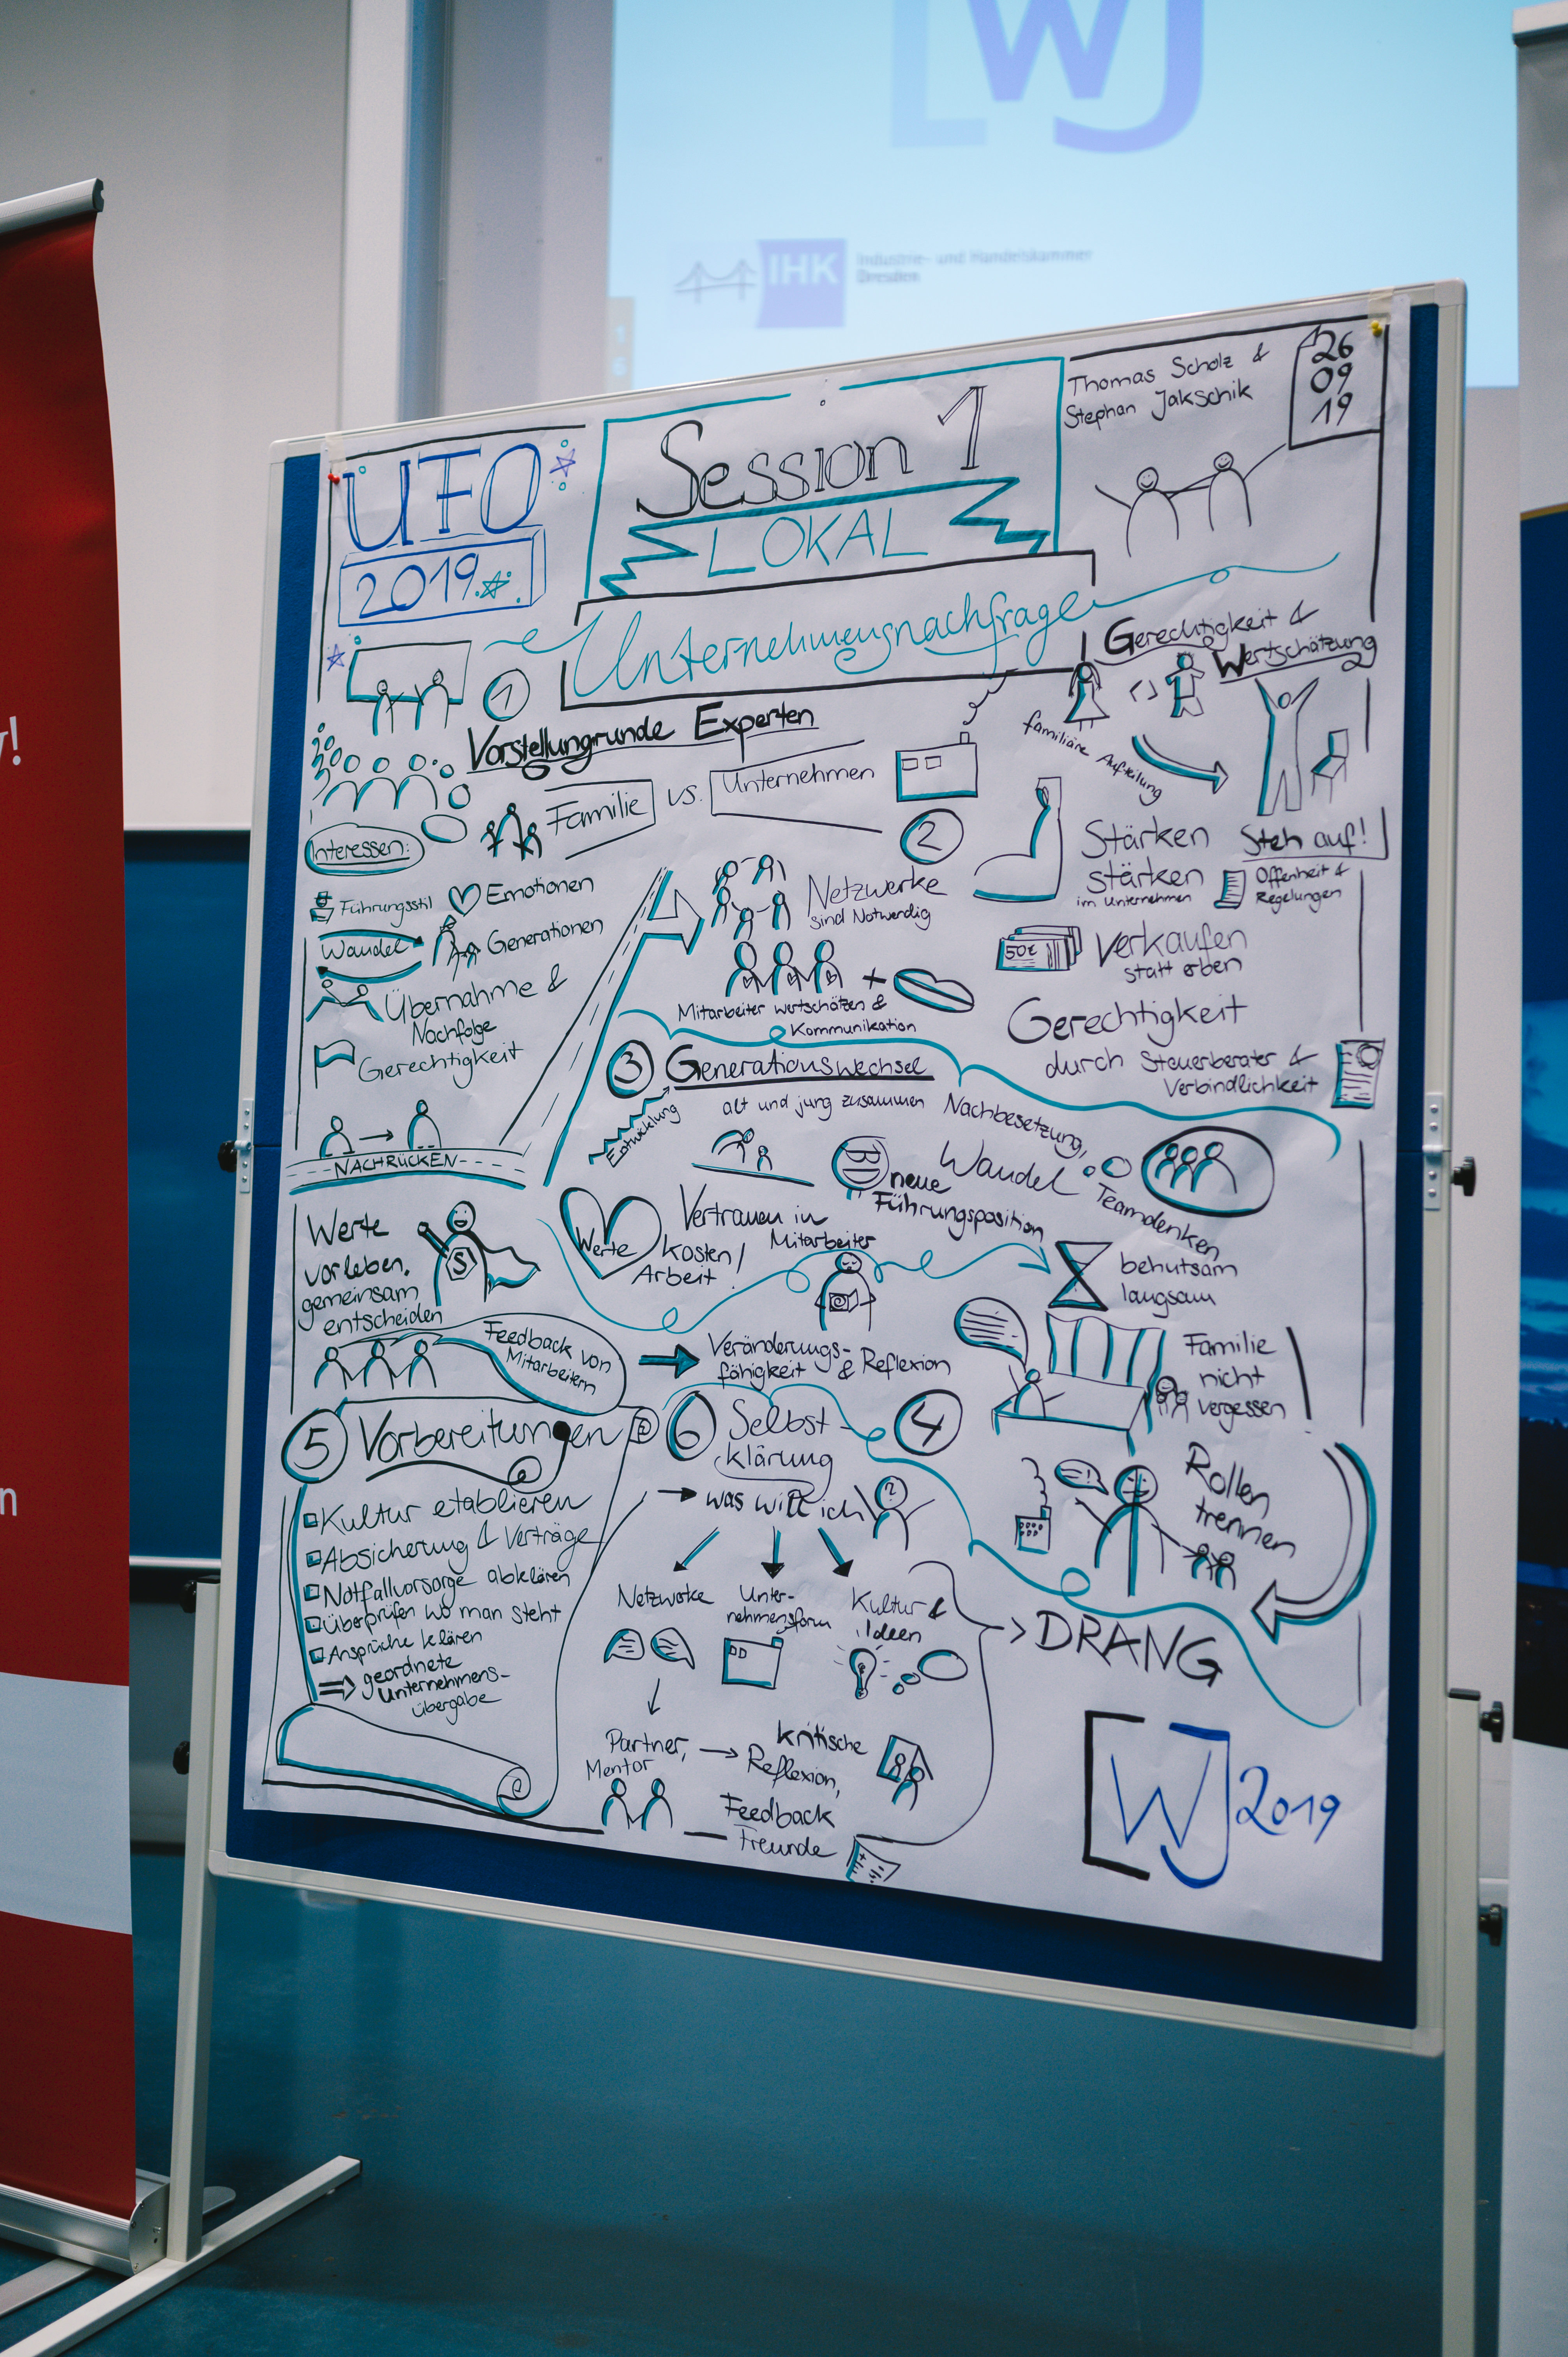 WJ
IHK
Industrie- und Handelskammer
Dresden
y!
n
UFO
2019
Session 1
LOKAL
Thomas Scholz &
Stephan Jakschik
26
09
19
Unternehmensnachfrage
1
Vorstellungrunde Experten
Familie vs. Unternehmen
Interessen:
Führungsstil
Emotionen
Wandel
Generationen
Übernahme &
Nachfolge
Gerechtigkeit
NACHRÜCKEN
2
Netzwerke
sind Notwendig
Mitarbeiter wertschätzen &
Kommunikation
Gerechtigkeit &
Wertschätzung
familiäre Aufteilung
Stärken
stärken
im Unternehmen
Steh auf!
Offenheit &
Regelungen
50€
Verkaufen
statt erben
Gerechtigkeit
durch Steuerberater &
Verbindlichkeit
3
Generationswechsel
Entwicklung
alt und jung zusammen
Nachbesetzung,
neue
Führungsposition
Wandel
Teamdenken
Werte
Vertrauen in
Mitarbeiter
Kosten/
Arbeit
behutsam
langsam
Werte
vorleben,
gemeinsam
entscheiden
S
Feedback von
Mitarbeitern
Veränderungs-
fähigkeit & Reflexion
Familie
nicht
vergessen
4
!
Rollen
trennen
5
Vorbereitungen
Kultur etablieren
Absicherung & Verträge
Notfallvorsorge abklären
Überprüfen wo man steht
Ansprüche klären
geordnete
Unternehmens-
übergabe
6
Selbst-
klärung
was will ich
?
Netzwerke
Unter-
nehmensform
Kultur &
Ideen
Partner,
Mentor
kritische
Reflexion,
Feedback
Freunde
DRANG
WJ 2019